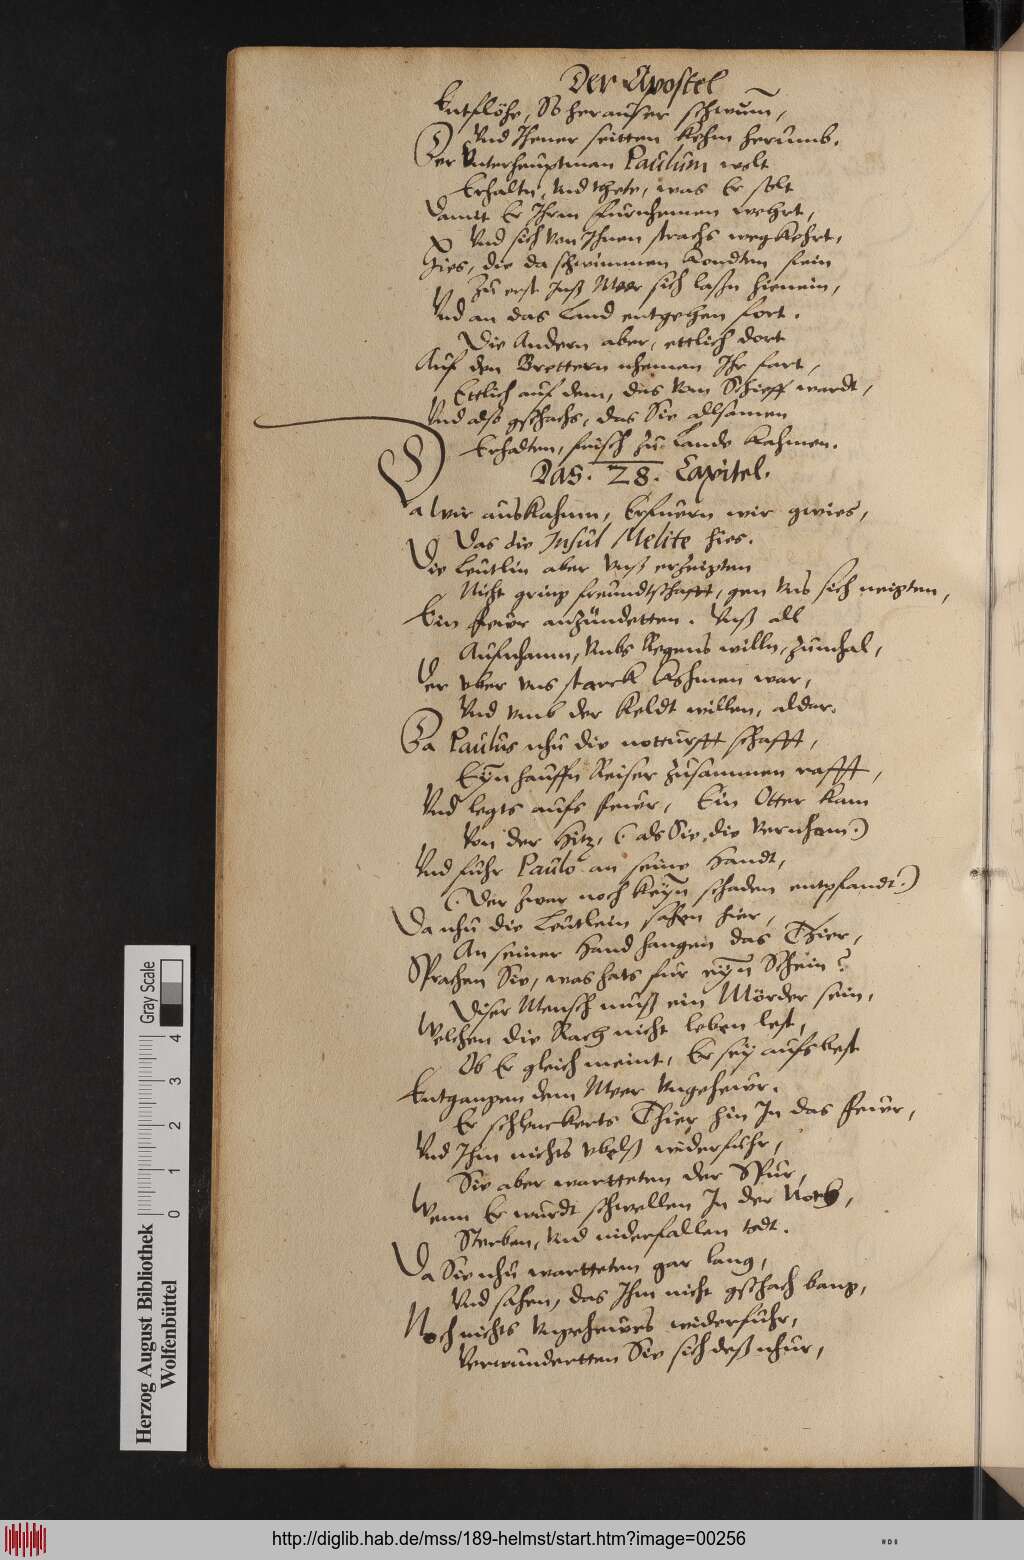 Der Apostel
Entflöhe, So herausser schwum̄,
Vnd Jhener seitten kehm herumb.
Der Vnterhauptman Paulum wolt
Erhaltn, Vnd thete, was Er solt
Damit Er Jhrm furnhemen wehrt,
Vnd sich von Jhnen strachs wegkehrt,
Hies, die da schwimmen kondten fein
Zu erst Jnß Meer sich laßn hienein,
Vnd an das Land entgehen fort.
Die Andern aber, ettlich dort
Auf den Brettern nhemen Jhr fart,
Ettlich auf dem, das vom Schieff wardt,
Vnd also gschachs, das Sie allsamen
Erhalten, frisch zu Lande kahmen.
Das. 28. Capitel.
Da wir auskahmn, Erfuern wir gwies,
Das die Jnsul Melite hies.
Die Leutlin aber Vnß erzeigten
Nicht gring freundtschafft, gen Vns sich neigten,
Ein fewr anzündetten. Vnß all
Aufnhamn, Vmbs Regens willn, zumhal,
Der vber vns starck kohmen war,
Vnd vmb der Keldt willen, aldar.
Da Paulus nhu die notturfft schafft,
Eyn hauffn Reiser zusammen rafft,
Vnd legts aufs fewr, Ein Otter kam
Von der Hitz, (als Sie die vernham.)
Vnd fuhr Paulo an seine Handt,
(Der zwar noch keyn schaden entpfandt.)
Da nhu die Leutlein sahen hier,
An seiner Hand hangen das Thier,
Sprachen Sie, was hats fur eyn Schein?
Diser Mensch muß ein Mörder sein,
Welchen die Rach nicht leben lest,
Ob Er gleich meint, Er sey aufs best
Entgangen dem Meer Vngehewr.
Er schlenckerts Thier hin Jn das fewr,
Vnd Jhm nichts vbelß widerfuhr,
Sie aber wartteten der Spur,
Wenn Er wurdt schwellen Jn der Noth,
Sterben, Vnd niderfallen todt.
Da Sie nhu wartteten gar lang,
Vnd sahen, das Jhm nicht gschach bang,
Noch nichts Vngehewrs widerfuhr,
Verwundertten Sie sich deß nhur,
Herzog August Bibliothek
Wolfenbüttel
0 1 2 3 4
Gray Scale
http://diglib.hab.de/mss/189-helmst/start.htm?image=00256